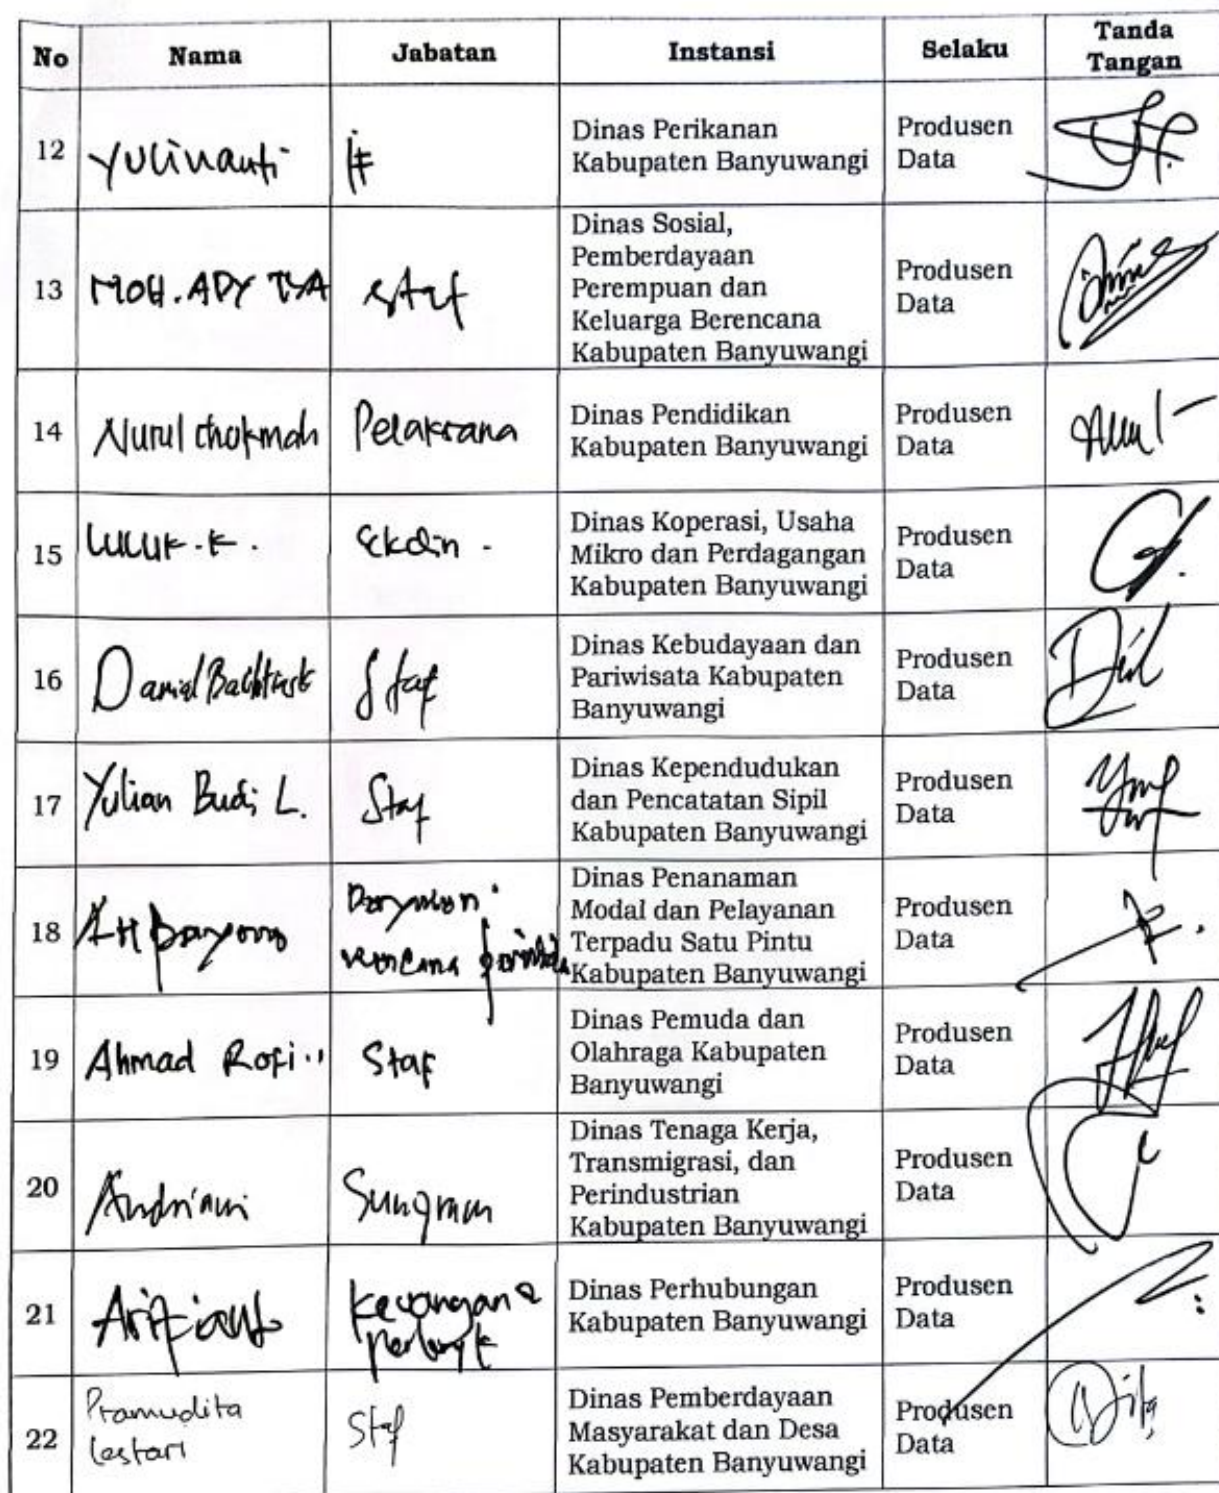 No Nama Jabatan Instansi Selaku Tanda Tangan
12 Yulinanti Dinas Perikanan Kabupaten Banyuwangi Produsen Data
13 MOH. ADY Staf Dinas Sosial, Pemberdayaan Perempuan dan Keluarga Berencana Kabupaten Banyuwangi Produsen Data
14 Nurul chokmah Pelaksana Dinas Pendidikan Kabupaten Banyuwangi Produsen Data
15 Luluk. k. Dinas Koperasi, Usaha Mikro dan Perdagangan Kabupaten Banyuwangi Produsen Data
16 Danial Staf Dinas Kebudayaan dan Pariwisata Kabupaten Banyuwangi Produsen Data
17 Yulian Budi L. Staf Dinas Kependudukan dan Pencatatan Sipil Kabupaten Banyuwangi Produsen Data
18 rencana Dinas Penanaman Modal dan Pelayanan Terpadu Satu Pintu Kabupaten Banyuwangi Produsen Data
19 Ahmad Rofi Staf Dinas Pemuda dan Olahraga Kabupaten Banyuwangi Produsen Data
20 Andriani Sungram Dinas Tenaga Kerja, Transmigrasi, dan Perindustrian Kabupaten Banyuwangi Produsen Data
21 Keuangan Dinas Perhubungan Kabupaten Banyuwangi Produsen Data
22 Pramudita lestari Staf Dinas Pemberdayaan Masyarakat dan Desa Kabupaten Banyuwangi Produsen Data